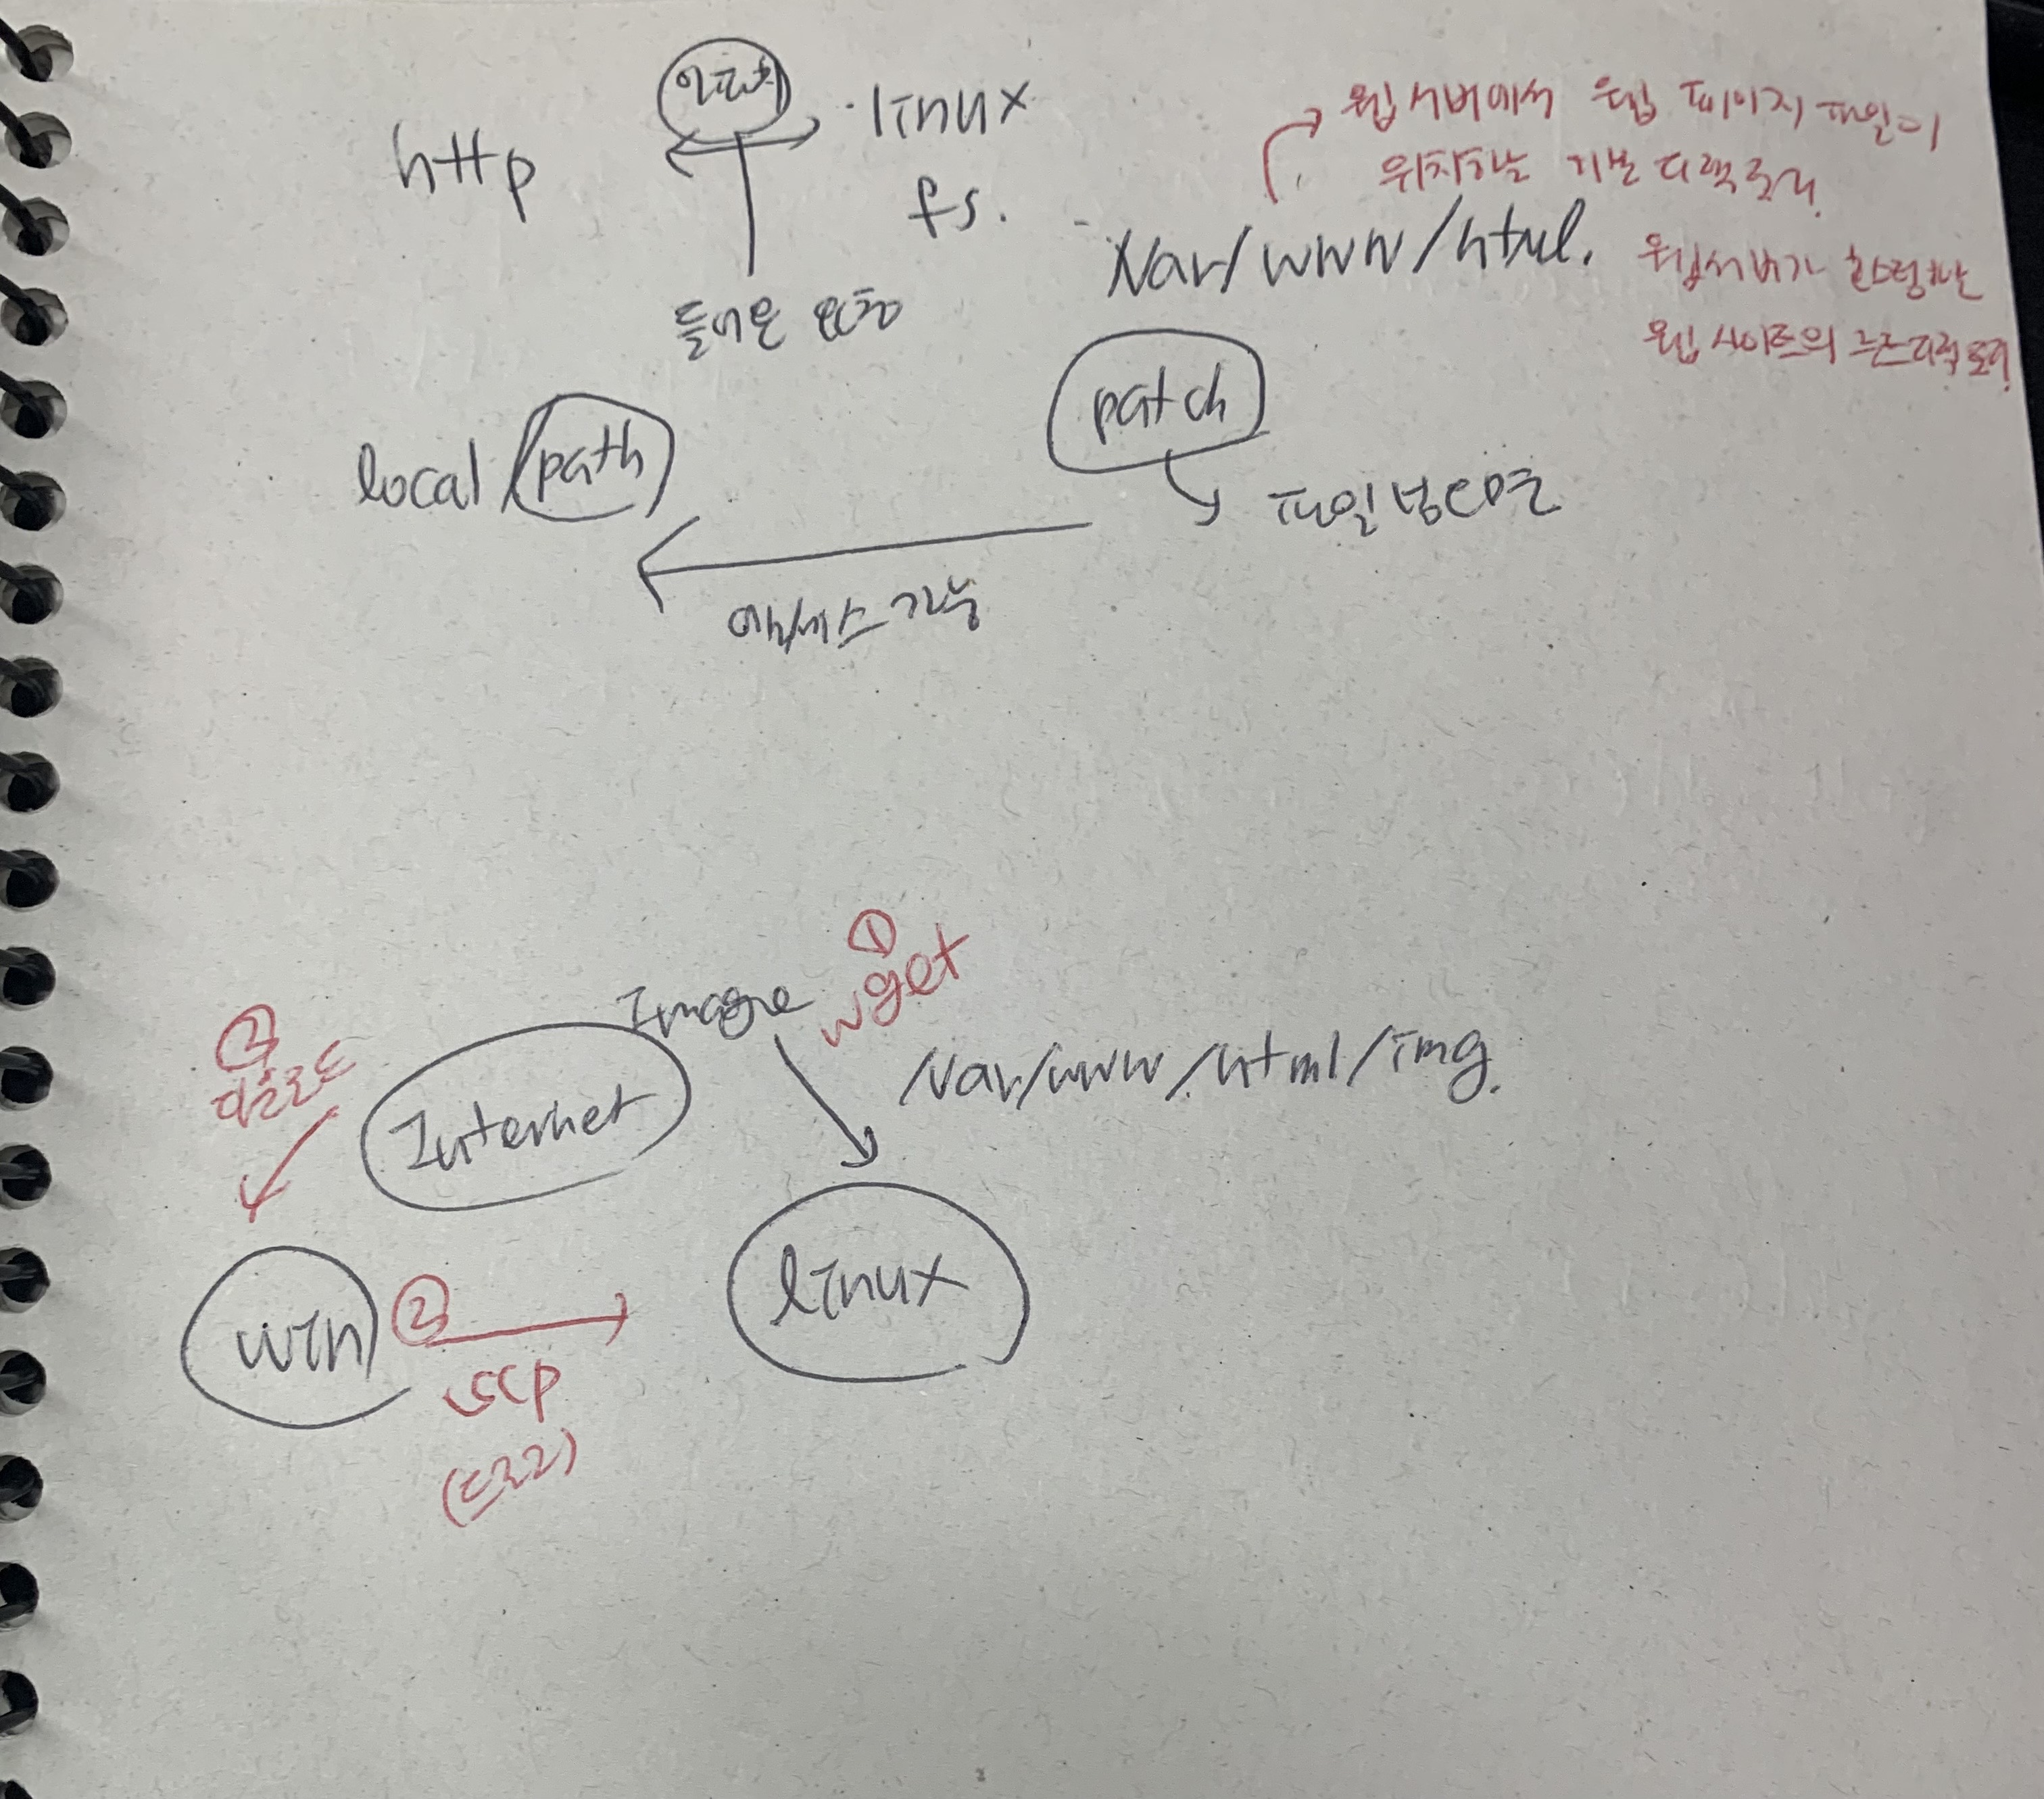 아파치
http
linux
fs.
들어온 요청
웹 서버에서 웹 페이지 파일이
위치하는 기본 디렉토리
/var/www/html.
웹서버가 호스팅하는
웹 사이트의 루트디렉토리
local/path
patch
액세스 가능
① wget
Image
② 다운로드
Internet
/var/www/html/img.
win
②
scp
linux